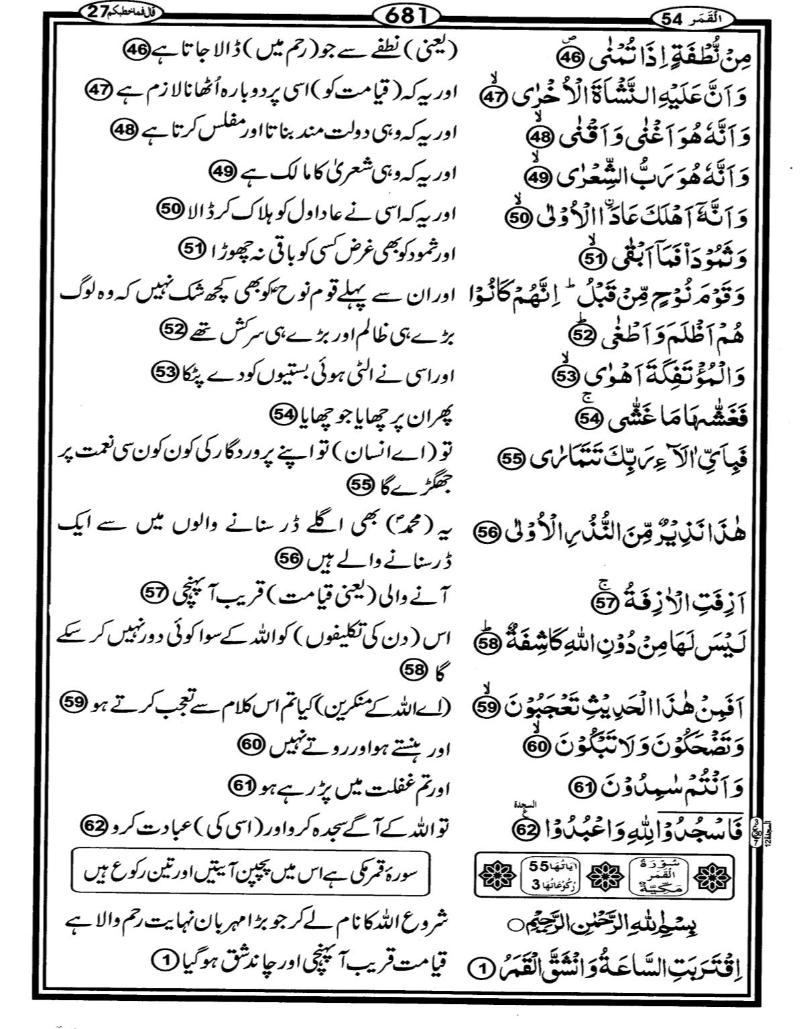 اَلْقَمَر 54
681
قَالَ فَمَا خَطْبُكُمْ 27
مِنْ نُّطْفَةٍ اِذَا تُمْنٰى ۪ 46
(یعنی) نطفے سے جو (رحم میں) ڈالا جاتا ہے 46
وَاَنَّ عَلَيْهِ النَّشْاَةَ الْاُخْرٰى ۙ 47
اور یہ کہ (قیامت کو) اسی پر دوبارہ اُٹھانا لازم ہے 47
وَاَنَّهٗ هُوَ اَغْنٰى وَاَقْنٰى ۙ 48
اور یہ کہ وہی دولت مند بناتا اور مفلس کرتا ہے 48
وَاَنَّهٗ هُوَ رَبُّ الشِّعْرٰى ۙ 49
اور یہ کہ وہی شعریٰ کا مالک ہے 49
وَاَنَّهٗٓ اَهْلَكَ عَادَا اۨلْاُوْلٰى ۙ 50
اور یہ کہ اسی نے عاد اول کو ہلاک کر ڈالا 50
وَثَمُوْدَا۟ فَمَآ اَبْقٰى ۙ 51
اور ثمود کو بھی غرض کسی کو باقی نہ چھوڑا 51
وَقَوْمَ نُوْحٍ مِّنْ قَبْلُ ؕ اِنَّهُمْ كَانُوْا
اور ان سے پہلے قوم نوحؑ کو بھی کچھ شک نہیں کہ وہ لوگ
هُمْ اَظْلَمَ وَاَطْغٰى ؕ 52
بڑے ہی ظالم اور بڑے ہی سرکش تھے 52
وَالْمُؤْتَفِكَةَ اَهْوٰى ۙ 53
اور اسی نے الٹی ہوئی بستیوں کو دے پٹکا 53
فَغَشّٰىهَا مَا غَشّٰى ۚ 54
پھر ان پر چھایا جو چھایا 54
فَبِاَىِّ اٰلَآءِ رَبِّكَ تَتَمَارٰى 55
تو (اے انسان) تو اپنے پروردگار کی کون کون سی نعمت پر
جھگڑے گا 55
هٰذَا نَذِيْرٌ مِّنَ النُّذُرِ الْاُوْلٰى 56
یہ (محمدؐ) بھی اگلے ڈر سنانے والوں میں سے ایک
ڈر سنانے والے ہیں 56
اَزِفَتِ الْاٰزِفَةُ ۚ 57
آنے والی (یعنی قیامت) قریب آ پہنچی 57
لَيْسَ لَهَا مِنْ دُوْنِ اللّٰهِ كَاشِفَةٌ ؕ 58
اس (دن کی تکلیفوں) کو اللہ کے سوا کوئی دور نہیں کر سکے
گا 58
اَفَمِنْ هٰذَا الْحَدِيْثِ تَعْجَبُوْنَ ۙ 59
(اے اللہ کے منکرین) کیا تم اس کلام سے تعجب کرتے ہو 59
وَتَضْحَكُوْنَ وَلَا تَبْكُوْنَ ۙ 60
اور ہنستے ہو اور روتے نہیں 60
وَاَنْتُمْ سٰمِدُوْنَ 61
اور تم غفلت میں پڑ رہے ہو 61
السجدة
فَاسْجُدُوْا لِلّٰهِ وَاعْبُدُوْا 62
تو اللہ کے آگے سجدہ کرو اور (اسی کی) عبادت کرو 62
السجدة 12
سُوْرَةُ الْقَمَرِ مَكِّيَّةٌ
اٰيَاتُهَا 55
رُكُوْعَاتُهَا 3
سورۂ قمر مکی ہے اس میں پچپن آیتیں اور تین رکوع ہیں
بِسْمِ اللّٰهِ الرَّحْمٰنِ الرَّحِيْمِ ○
شروع اللہ کا نام لے کر جو بڑا مہربان نہایت رحم والا ہے
اِقْتَرَبَتِ السَّاعَةُ وَانْشَقَّ الْقَمَرُ 1
قیامت قریب آ پہنچی اور چاند شق ہو گیا 1